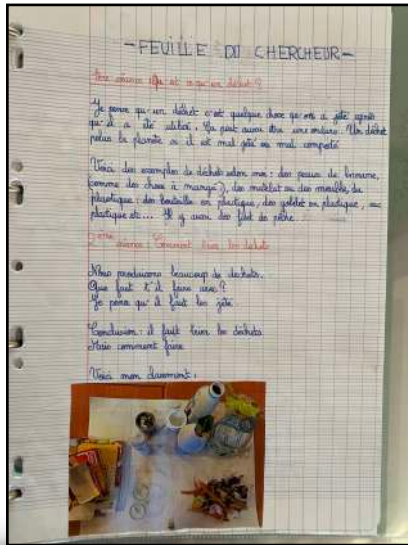 -FEUILLE DU CHERCHEUR-
1ère séance : Qu'est ce qu'un déchet ?
Je pense qu'un déchet c'est quelque chose qu'on a jeté après
qu'il a été utilisé. Ça peut aussi être une ordure. Un déchet
polue la planète si il est mal jeté ou mal composté
Voici des exemples de déchets selon moi : des peaux de banane,
comme des choses à manger), des matelat ou des meubles, du
plastique : des bouteilles en plastique, des gobelet en plastique, sac
plastique etc... Il y aussi des filet de pêche.
2ème séance : Comment trier les déchets
Nous produisons beaucoup de déchets.
Que faut t'il faire avec ?
Je pense qu'il faut les jeté.
Conclusion : il faut trier les déchets
Mais comment faire
Voici mon classement :